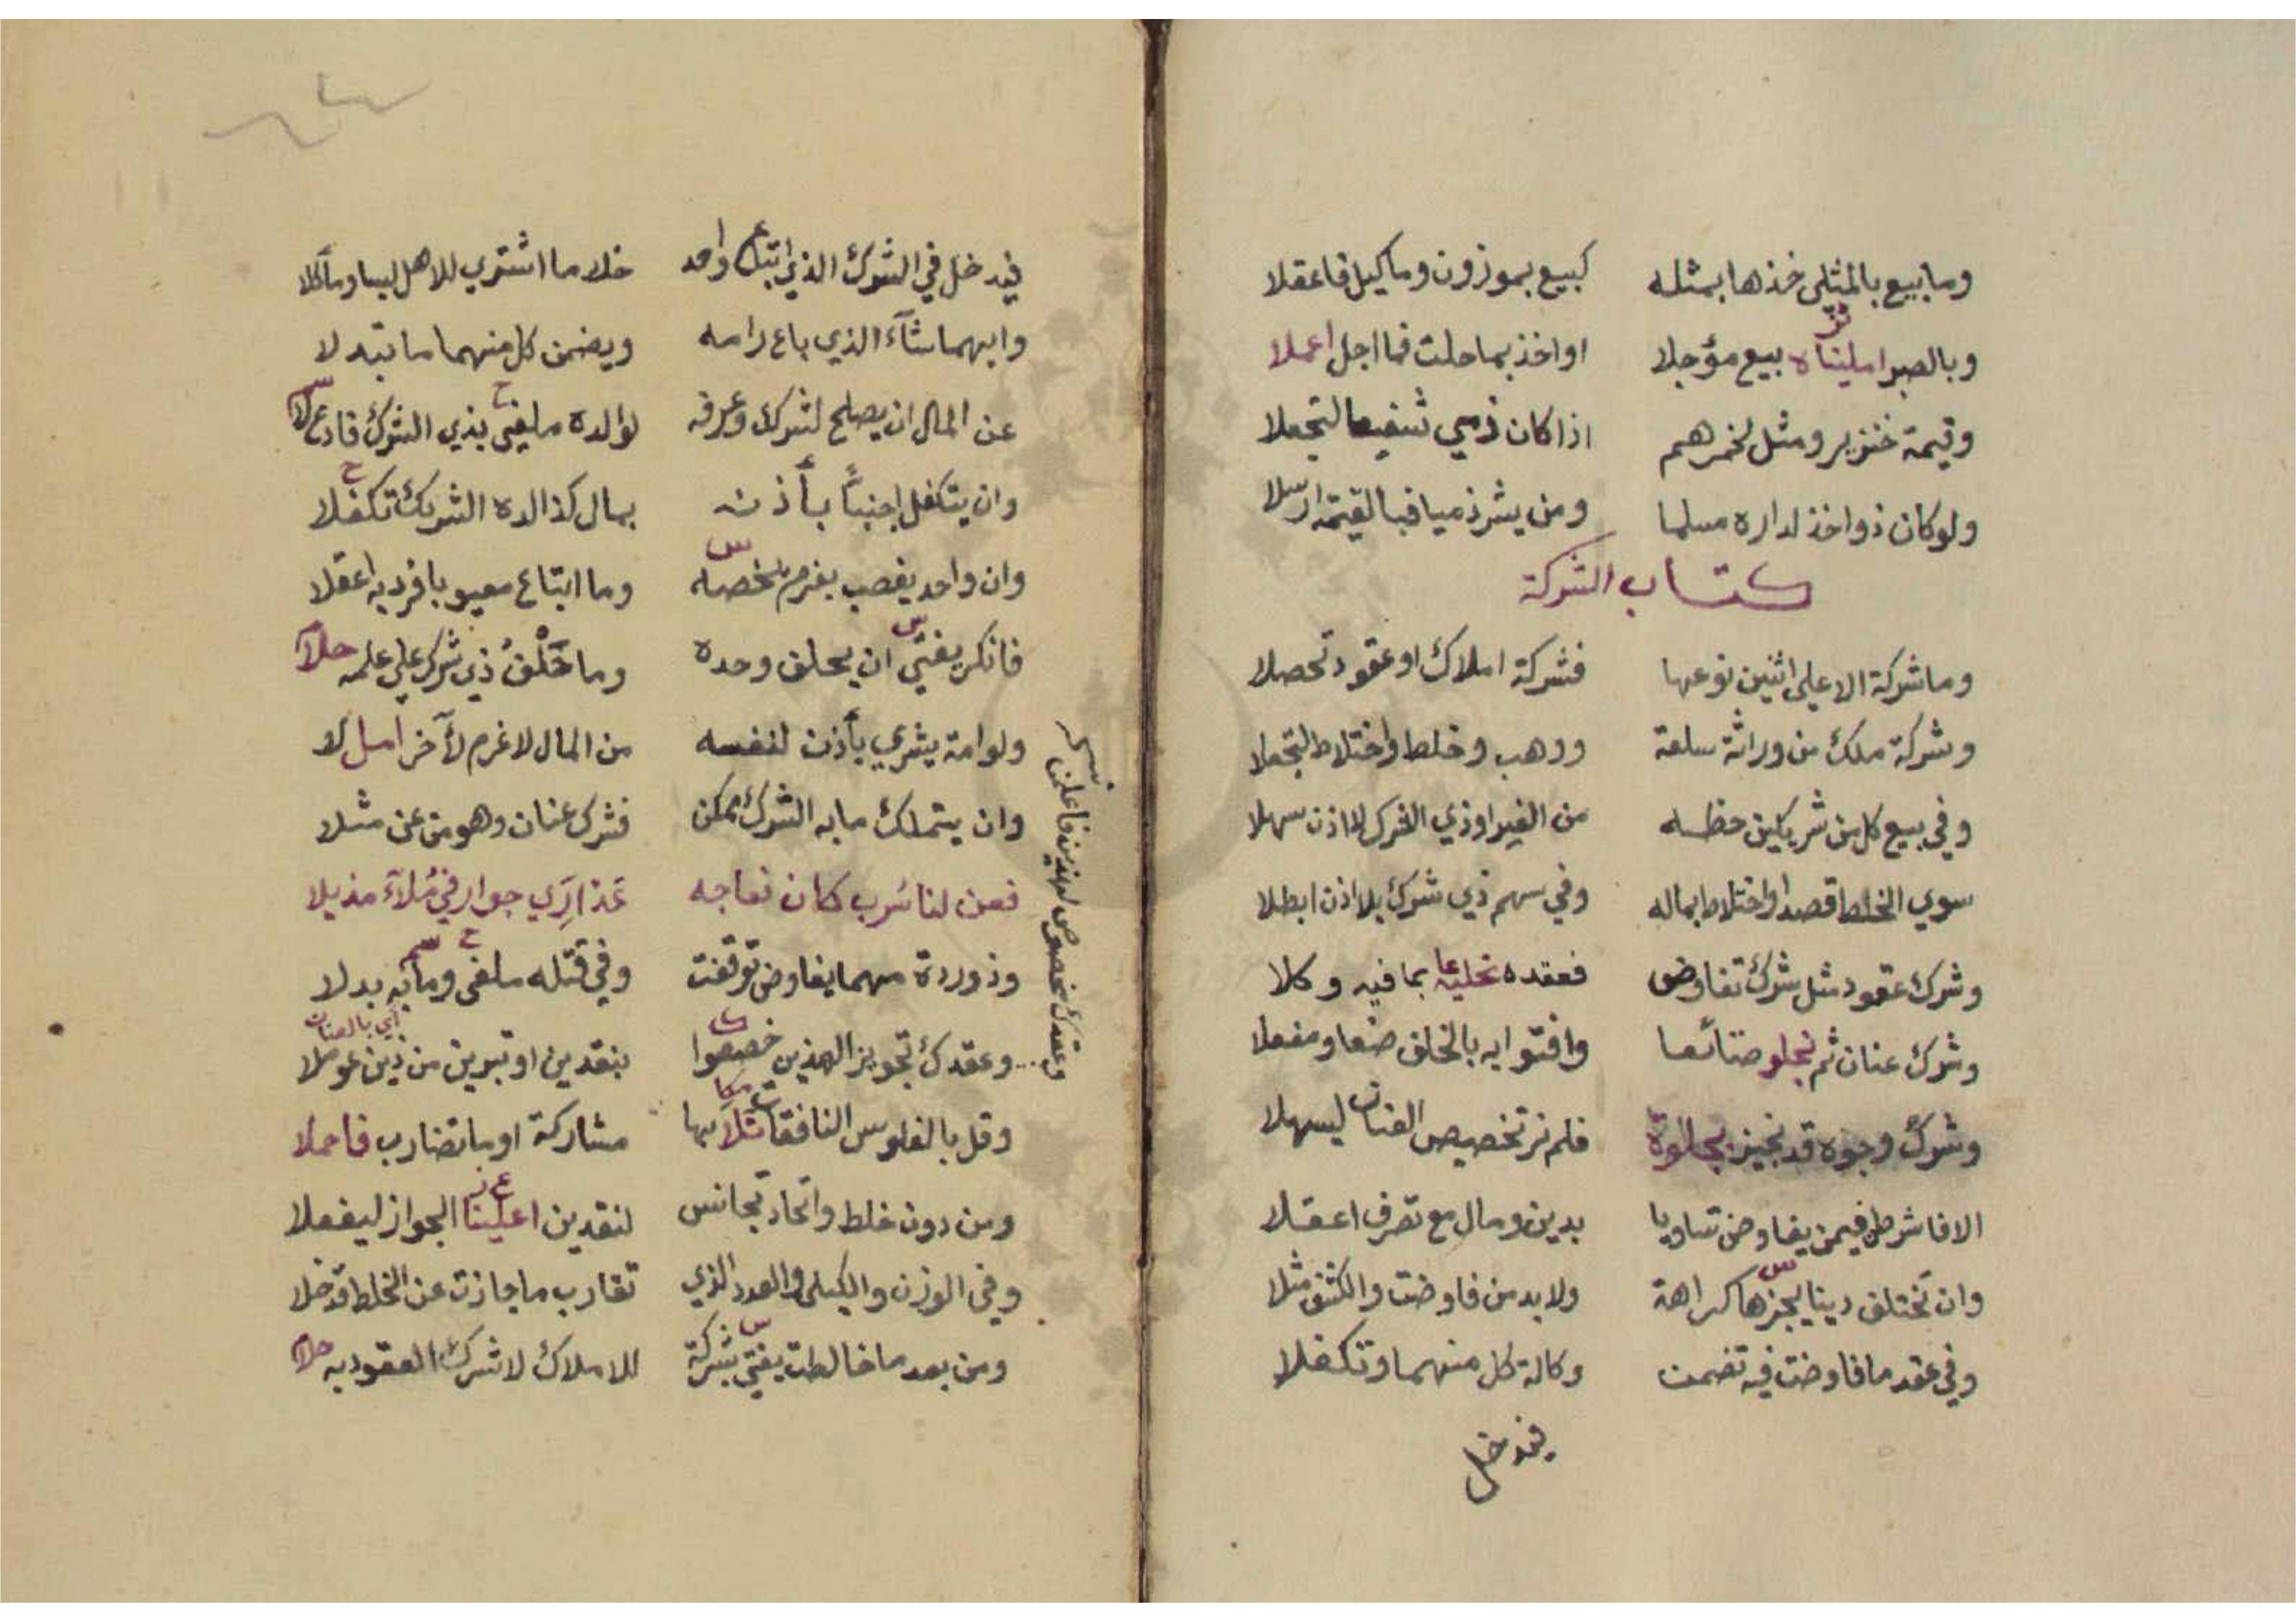 وما بيع بالمثلي خذها بمثله كبيع بموزون وما كيل فاعقلا
وبالصبر امليناه بيع مؤجلا او اخذ بما حلت فما اجل اعملا
وقيمة خنزير ومثل لخمرهم اذا كان ذمي شفيعا لتجعلا
ولو كان ذو اخذ لداره مسلما ومن يشر ذميا فبالقيمة ارسلا
كتاب الشركة
وما شركة الا على اثنين نوعها فشركة املاك او عقود تحصلا
وشركة ملك من وراثة سلعة ووهب وخلط واختلاط لتجعلا
وفي بيع كل من شريكين حظه من الغير او ذي الشرك لا اذن سهلا
سوي الخلط قصدا واختلاط بماله وفي سهم ذي شرك بلا اذن ابطلا
وشرك عقود مثل شرك تفاوض فعقده تحليه بما فيه وكلا
وشرك عنان ثم نجلو صنائعا وافتوا به بالخلف صنعا ومفعلا
وشرك وجوه قد نجيز بجلوة فلم نر تخصيص العنان ليسهلا
الا فاشرطن فيمن يفاوض تساويا بدين ومال مع تصرف اعقلا
وان تختلف دينا يجزها كراهة ولا بد من فاوضت والكتق مثلا
وفي عقد ما فاوضت فيه تضمنت وكالة كل منهما وتكفلا
فيدخل
فيدخل في الشرك الذي ابتاع واحد خلا ما اشترى للاهل لبسا ومأكلا
وايهما شآء الذي باع رامه ويضمن كل منهما ما تبدلا
عن المال ان يصلح لشرك وعرفه لوالده ملغى بذي الشرك فادع لا
وان يتكفل اجنبيا بأذنه بمال كذا لده الشريك تكفلا
وان واحد يغصب يغرم بخصه وما ابتاع معيوبا فرد به اعقلا
فانكر يفتي ان يحلف وحده وما حَلْفُ ذي شرك على علمه حلا
ولو امة يشري بأذن لنفسه من المال لا غرم لآخر امل لا
وان يتملك ما به الشرك ممكن فشرك عنان وهو من عن مثلا
فعن لنا سرب كان نعاجه عذاري جوار في ملآء مذيلا
وذو ردة مهما يفاوض توقفت وفي قتله ملغى وما به بدلا
وعقدك تجويز الهذين خصصوا بنقدين او تبرين من ذين عوملا
اي بالعنان
وقل بالفلوس النافقات تلا بها مشاركة او ما تضارب فاحملا
ومن دون خلط واتحاد تجانس لنقدين اعلينا الجواز ليفعلا
وفي الوزن والكيلي والعدد الذي تقارب ما جازت عن الخلط قد خلا
ومن بعد ما خالطت يفتي بشركة للاملاك لا شرك العقود به حلا
وعقدك مخصوص لهذين فاعلمن